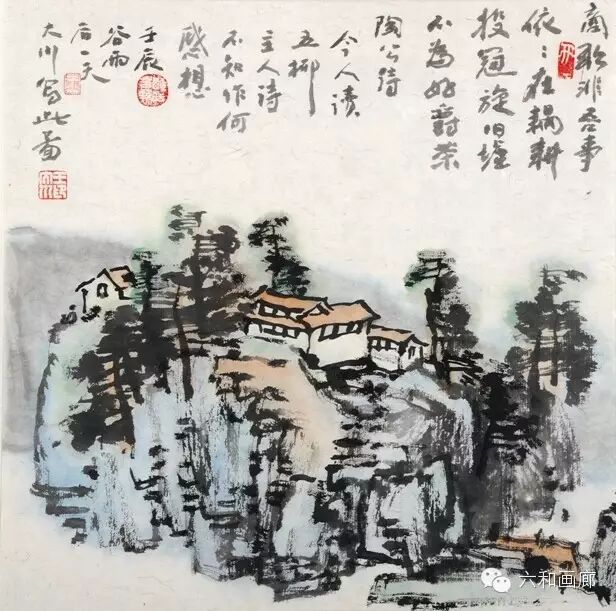 商歌非吾事
依:在耦耕
投冠旋旧墟
不为好爵荣
陶公诗
今人读
五柳
主人诗
不知作何
感想
壬辰
谷雨
后一天
大川写此图
六和画廊